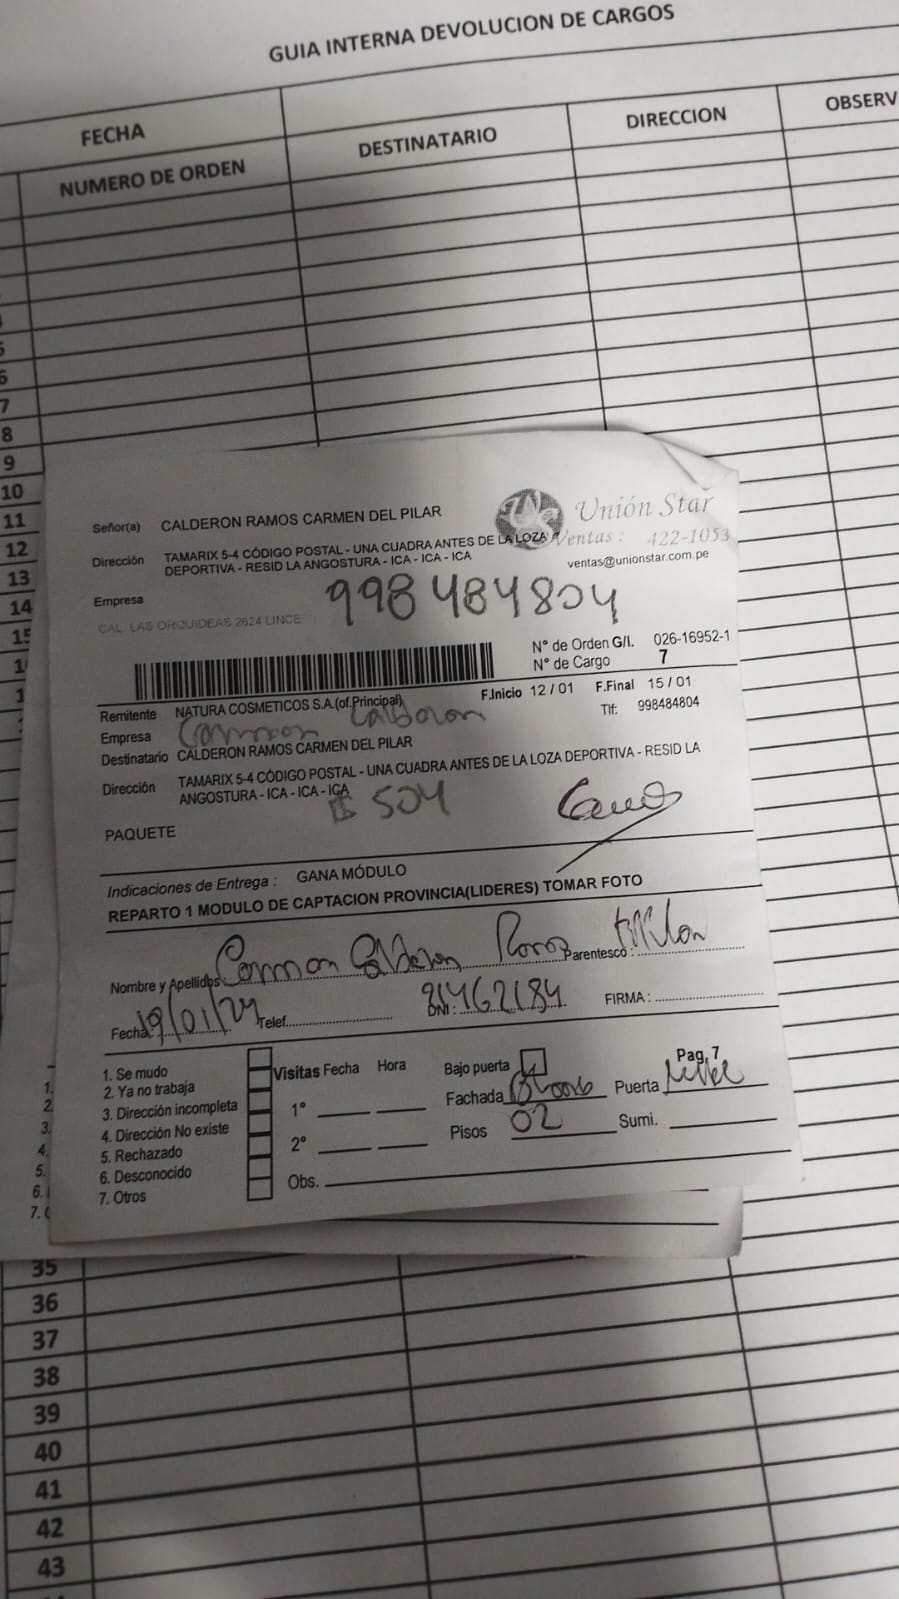 GUIA INTERNA DEVOLUCION DE CARGOS
FECHA
NUMERO DE ORDEN DESTINATARIO DIRECCION OBSERV
5
6
7
8
9
10
11
12
13
14
Señor(a) CALDERON RAMOS CARMEN DEL PILAR
Unión Star
Dirección TAMARIX 5-4 CÓDIGO POSTAL - UNA CUADRA ANTES DE LA LOZA
DEPORTIVA - RESID LA ANGOSTURA - ICA - ICA - ICA
Ventas: 422-1053
ventas@unionstar.com.pe
Empresa
998484804
CAL. LAS ORQUIDEAS 2624 LINCE
N° de Orden G/I. 026-16952-1
N° de Cargo 7
F.Inicio 12 / 01 F.Final 15 / 01
Remitente NATURA COSMETICOS S.A.(of.Principal)
Tlf: 998484804
Empresa Carmen Calderon
Destinatario CALDERON RAMOS CARMEN DEL PILAR
Dirección TAMARIX 5-4 CÓDIGO POSTAL - UNA CUADRA ANTES DE LA LOZA DEPORTIVA - RESID LA
ANGOSTURA - ICA - ICA - ICA
504
PAQUETE
Indicaciones de Entrega : GANA MÓDULO
REPARTO 1 MODULO DE CAPTACION PROVINCIA(LIDERES) TOMAR FOTO
Nombre y Apellidos: Carmen Calderon Ramos Parentesco : titular
Fecha: 19/01/24 Telef. DNI : 21462184 FIRMA :
Pag. 7
1. Se mudo
2. Ya no trabaja
3. Dirección incompleta
4. Dirección No existe
5. Rechazado
6. Desconocido
7. Otros
Visitas Fecha Hora
1°
2°
Obs.
Bajo puerta
Fachada Blanco Puerta
Pisos 02 Sumi.
35
36
37
38
39
40
41
42
43